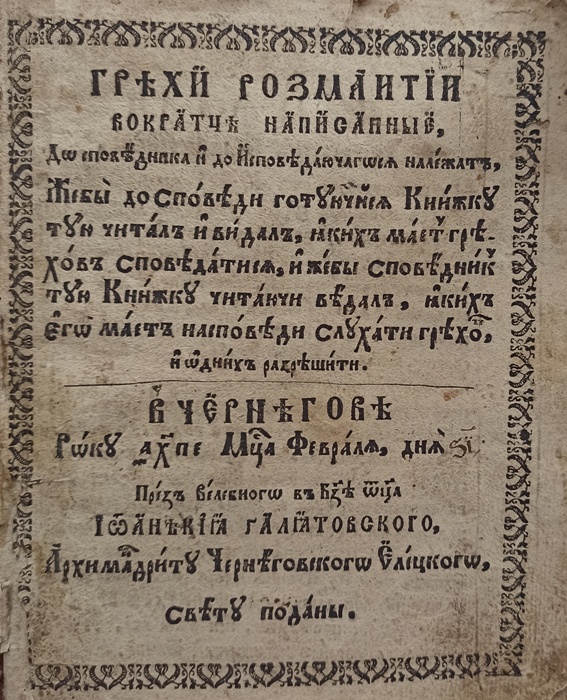 ГРѢХИ́ РОЗМАИ́ТІИ
ВОКРА́ТЦѢ НАПИ́САННЫЕ,
Дѡ сповѣ́дника и҆ до И҆сповѣ́даючагѡся належа́тъ,
Же́бы̀ до спо́вѣди готу́ючийся Кни́жку
тую чита́лъ и҆ ви́далъ, ꙗ҆ки́хъ ма́етъ грѣ-
хо́въ сповѣ́датися, и҆ же́бы сповѣ́дникъ
тую Кни́жку чита́ючи вѣ́далъ, ꙗ҆ки́хъ
є҆гѡ̀ ма́етъ наспо́вѣди слу́хати грѣхо́въ,
и҆ ѿ дни́хъ разрѣши́ти.
В̾ ЧЕРНѢ́ГОВѢ
Рѡ́ку ҂а҃хпе Мц҃а Февра́ля, дня̀ ѕ҃і
Пре́зъ велебногѡ въ Бз҃ѣ ѿц҃а
ІѠАНѢ́КІА ГАЛѦТОВСКОГО,
А҆рхима́ндри́ту Чернѣ́говскогѡ Є҆ле́цкогѡ,
свѣ́ту по́даны.